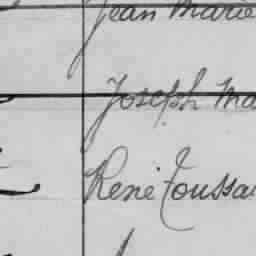 Jean Marie
Joseph Ma
René Toussa